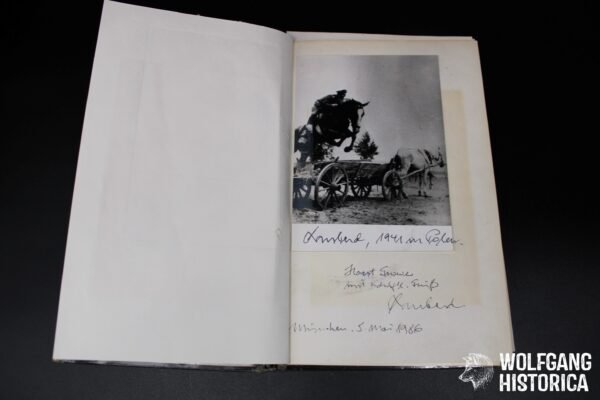 Lombard, 1941 in Polen.
Horst
mit herzl. Gruß
Lombard
München, 5. Mai 1986
WOLFGANG
HISTORICA